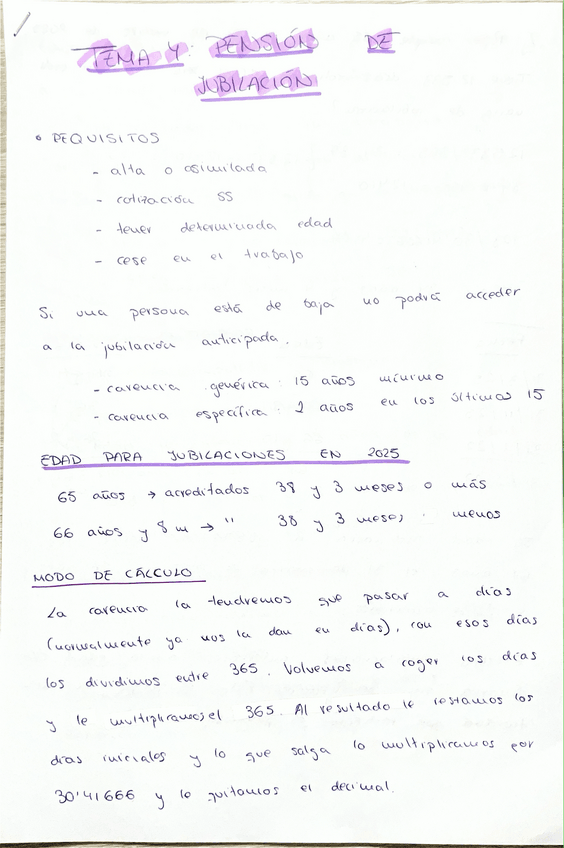 TEMA 4: PENSIÓN DE
JUBILACIÓN
• REQUISITOS
- alta o asimilada
- cotización SS
- tener determinada edad
- cese en el trabajo
Si una persona está de baja no podrá acceder
a la jubilación anticipada.
- carencia genérica: 15 años mínimo
- carencia específica: 2 años en los últimos 15
EDAD PARA JUBILACIONES EN 2025
65 años → acreditados 38 y 3 meses o más
66 años y 8 m → " 38 y 3 meses menos
MODO DE CÁLCULO
La carencia la tendremos que pasar a días
(normalmente ya nos la dan en días), con esos días
los dividimos entre 365. Volvemos a coger los días
y le multiplicamos el 365. Al resultado le restamos los
días iniciales y lo que salga lo multiplicamos por
30'41666 y le quitamos el decimal.